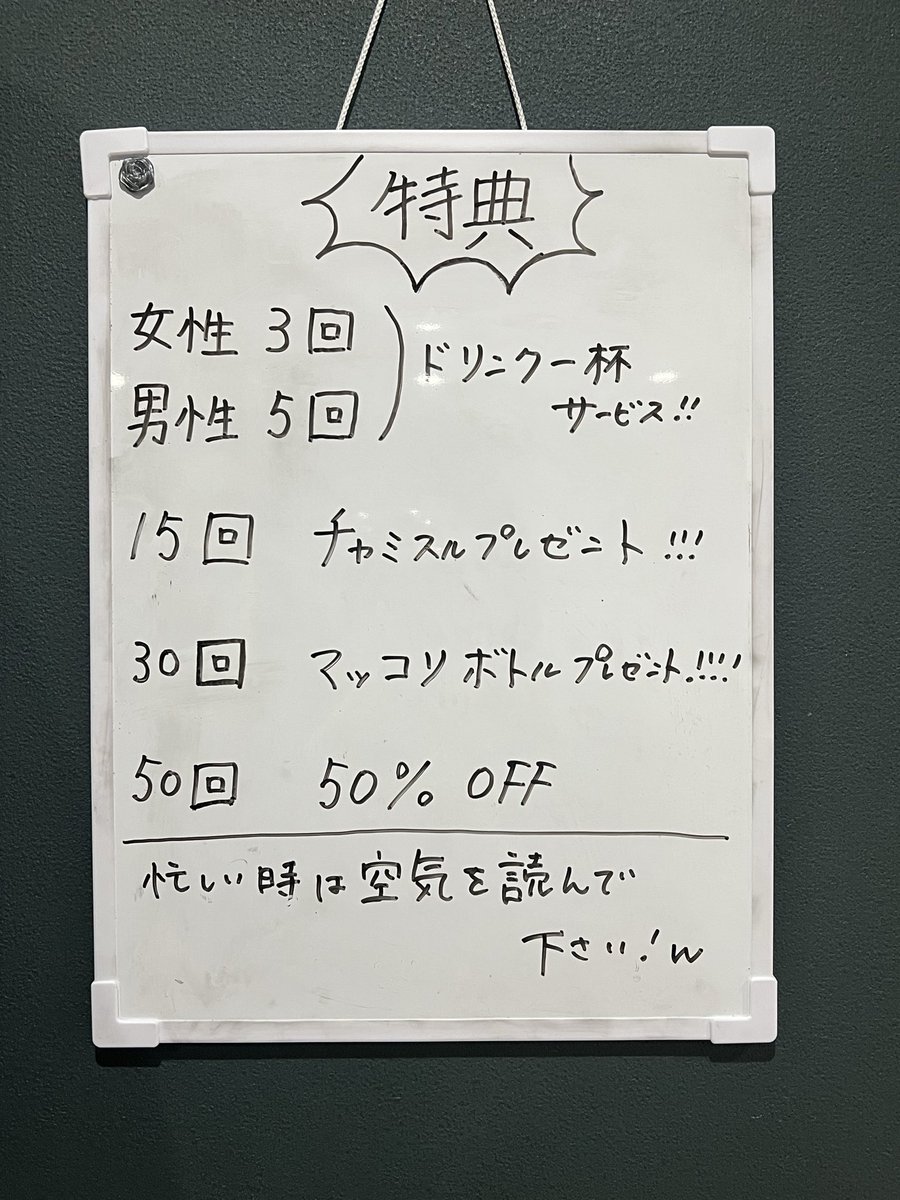 特典
女性 3回
男性 5回
ドリンク一杯
サービス!!
15回 チャミスルプレゼント!!!
30回 マッコリボトルプレゼント!!!!
50回 50% OFF
忙しい時は空気を読んで
下さい!w